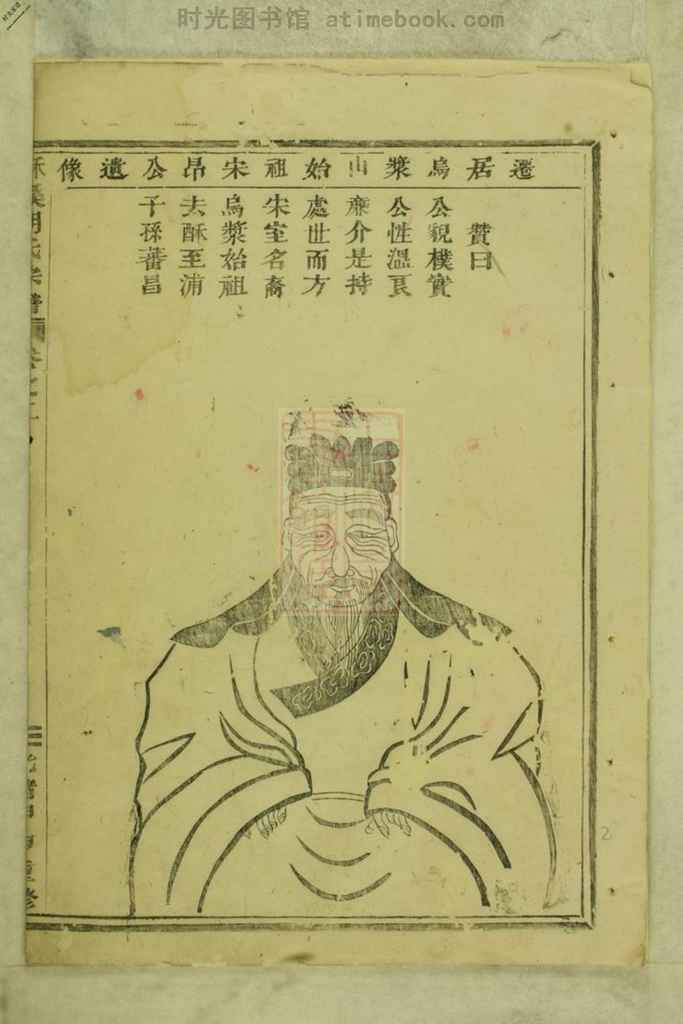 时光图书馆 atimebook.com
遷居烏漿山始祖宋昂公遺像
贊曰
公貌樸實
公性溫良
廉介是持
處世而方
宋室名裔
烏漿始祖
去酥至浦
子孫蕃昌
2